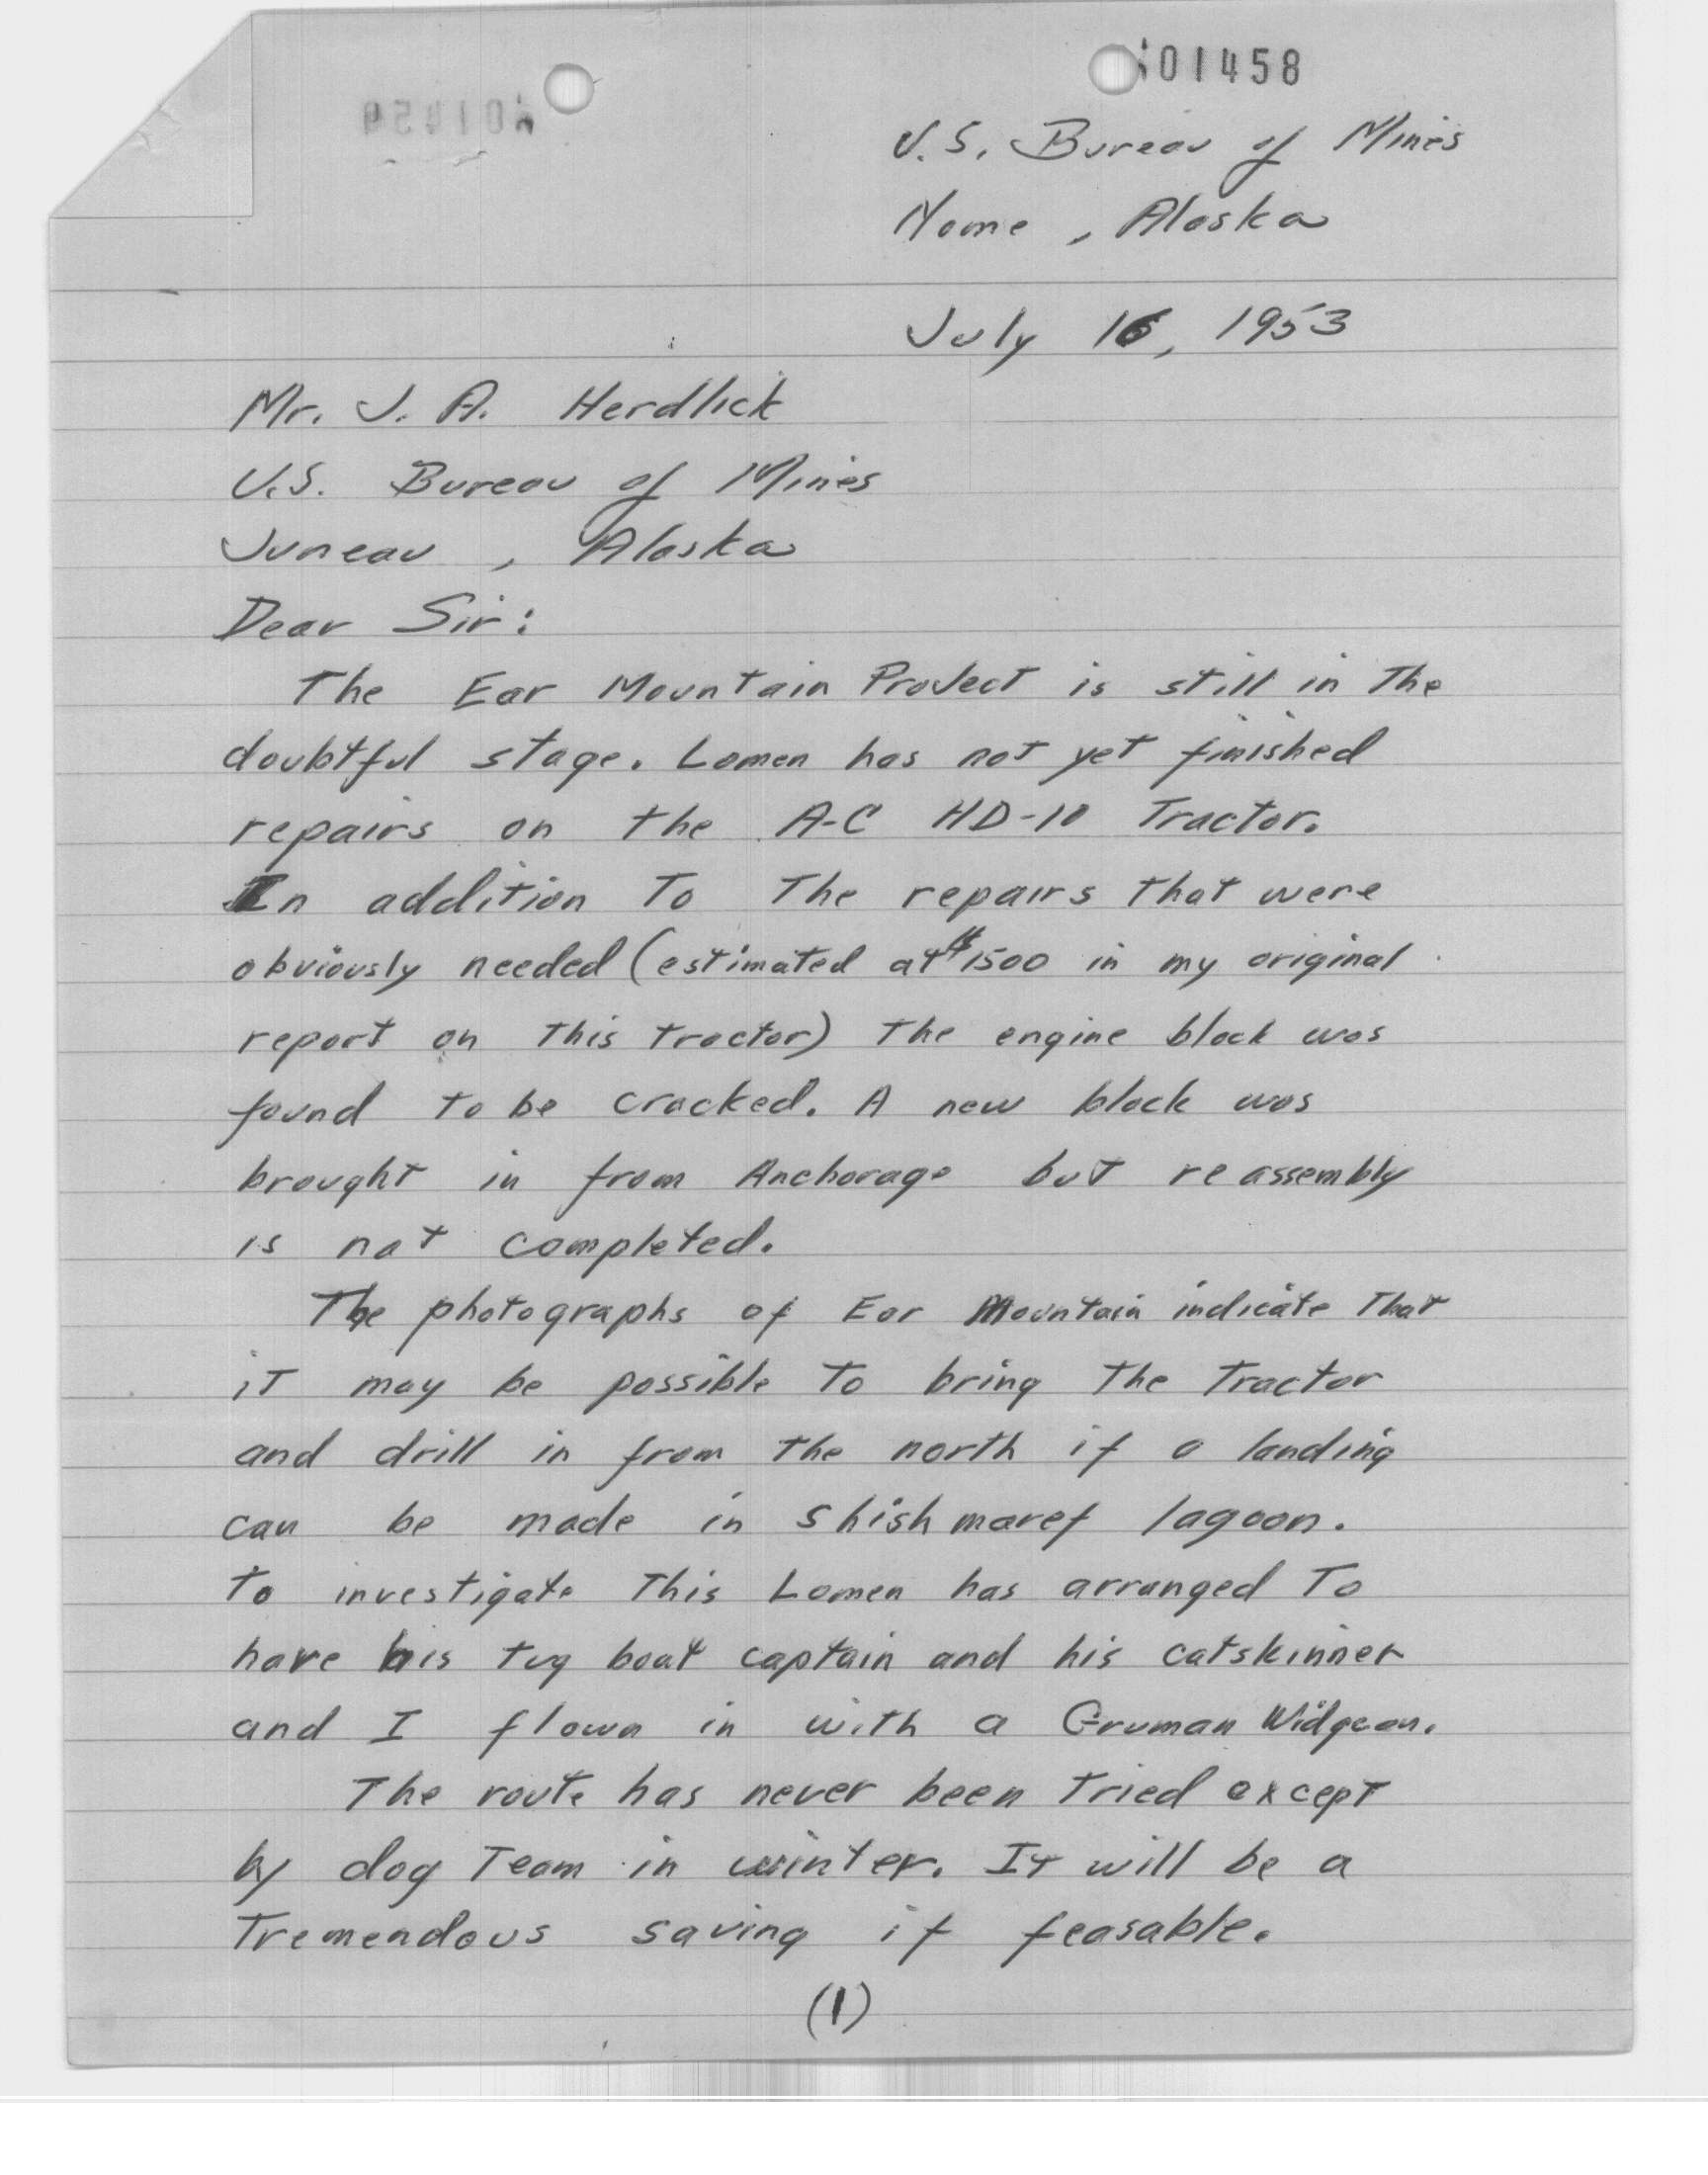 601458
U.S. Bureau of Mines
Nome, Alaska
July 16, 1953
Mr. J. A. Herdlick
U.S. Bureau of Mines
Juneau, Alaska
Dear Sir:
The Ear Mountain Project is still in the
doubtful stage. Lomen has not yet finished
repairs on the A-C HD-10 Tractor.
In addition to the repairs that were
obviously needed (estimated at $1500 in my original
report on this tractor) the engine block was
found to be cracked. A new block was
brought in from Anchorage but reassembly
is not completed.
The photographs of Ear Mountain indicate that
it may be possible to bring the tractor
and drill in from the north if a landing
can be made in Shishmaref lagoon.
To investigate this Lomen has arranged to
have his tug boat captain and his catskinner
and I flown in with a Gruman Widgeon.
The route has never been tried except
by dog team in winter. It will be a
tremendous saving if feasable.
(1)